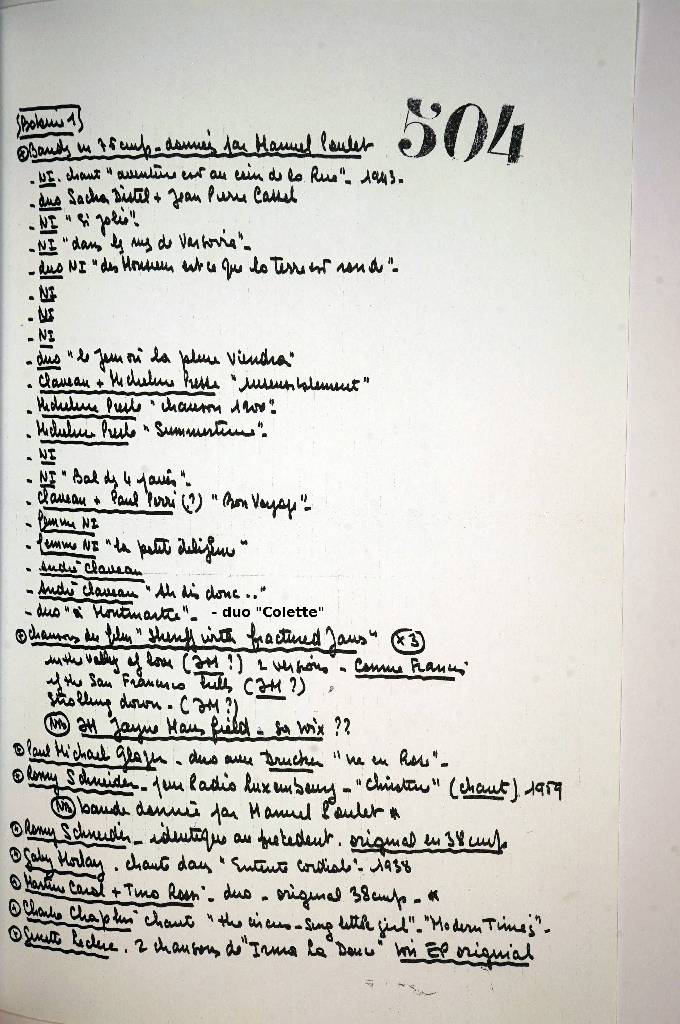 504
[Bobine 1]
Bandes en 76 cm/s - données par Manuel Poulet
- NI. chant "aventure est au coin de la Rue" - 1943.
- duo Sacha Distel + Jean Pierre Cassel
- NI "Si jolie".
- NI "dans les rues de Varsovie".
- duo NI "des Monsieur est ce que la Terre est ronde".
- NI
- NI
- NI
- duo "le Jour où la pluie Viendra"
- Claveau + Micheline Presle
- Micheline Presle "chanson 1900".
- Micheline Presle "Summertime".
- NI
- NI "Bal des 4 pavés".
- Claveau + Paul Perri (?) "Bon Voyage".
- femme NI
- femme NI "la petite diligence"
- André Claveau
- André Claveau "Ah dis donc .."
- duo "à Montmartre". - duo "Colette"
chansons du film "Sheriff with fractured Jaws" (x3)
in the Valley of love (JM ?) 2 versions - Connie Francis
if the San Francisco hills (JM ?)
Strolling down - (JM ?)
JM Jayne Mansfield - sa voix ??
Paul Michael Glaser - duo avec Drucker "vie en Rose".
Romy Schneider - pour Radio Luxembourg - "Christine" (chant) 1959
bande donnée par Manuel Poulet *
Romy Schneider - identique au précédent. original en 38 cm/s
Gaby Morlay. chante dans "Entente Cordiale". 1938
Martine Carol + Tino Rossi - duo - original 38 cm/s - *
Charlie Chaplin chante "the circus - sing little girl" - "Modern Times" -
Ginette Leclerc. 2 chansons de "Irma la Douce" voir EP original